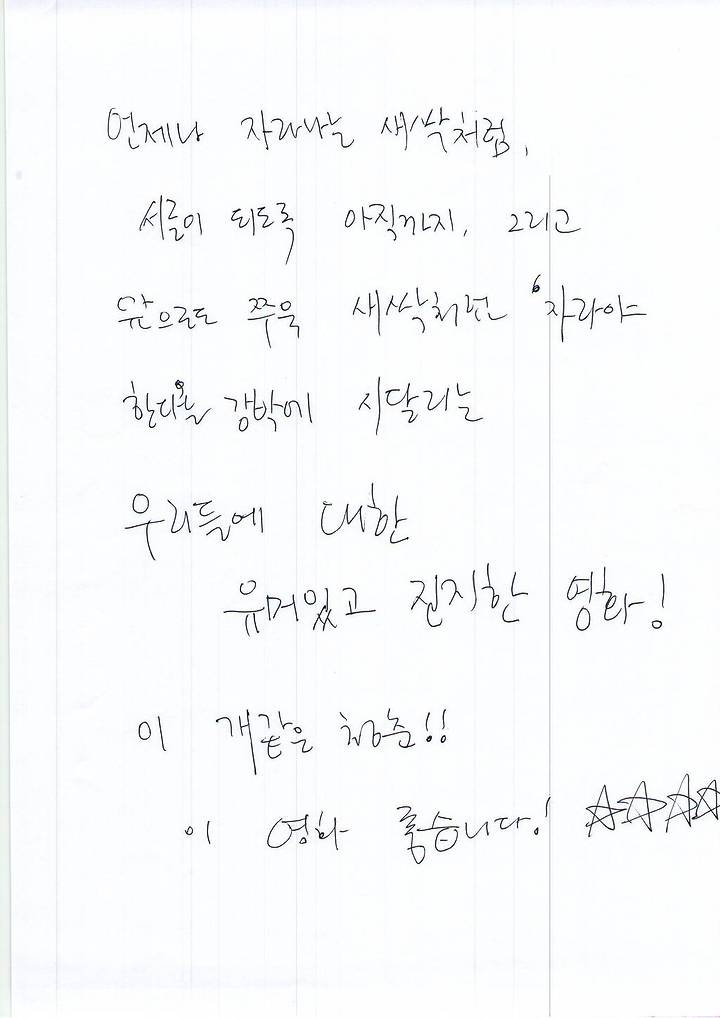 언제나 자라나는 새싹처럼,
서른이 되도록 아직까지, 그리고
앞으로도 쭈욱 새싹처럼 '자라야
한다'을 강박에 시달리는
우리들에 대한
유머있고 진지한 영화!
이 개같은 청춘!!
이 영화 좋습니다! ☆☆☆☆